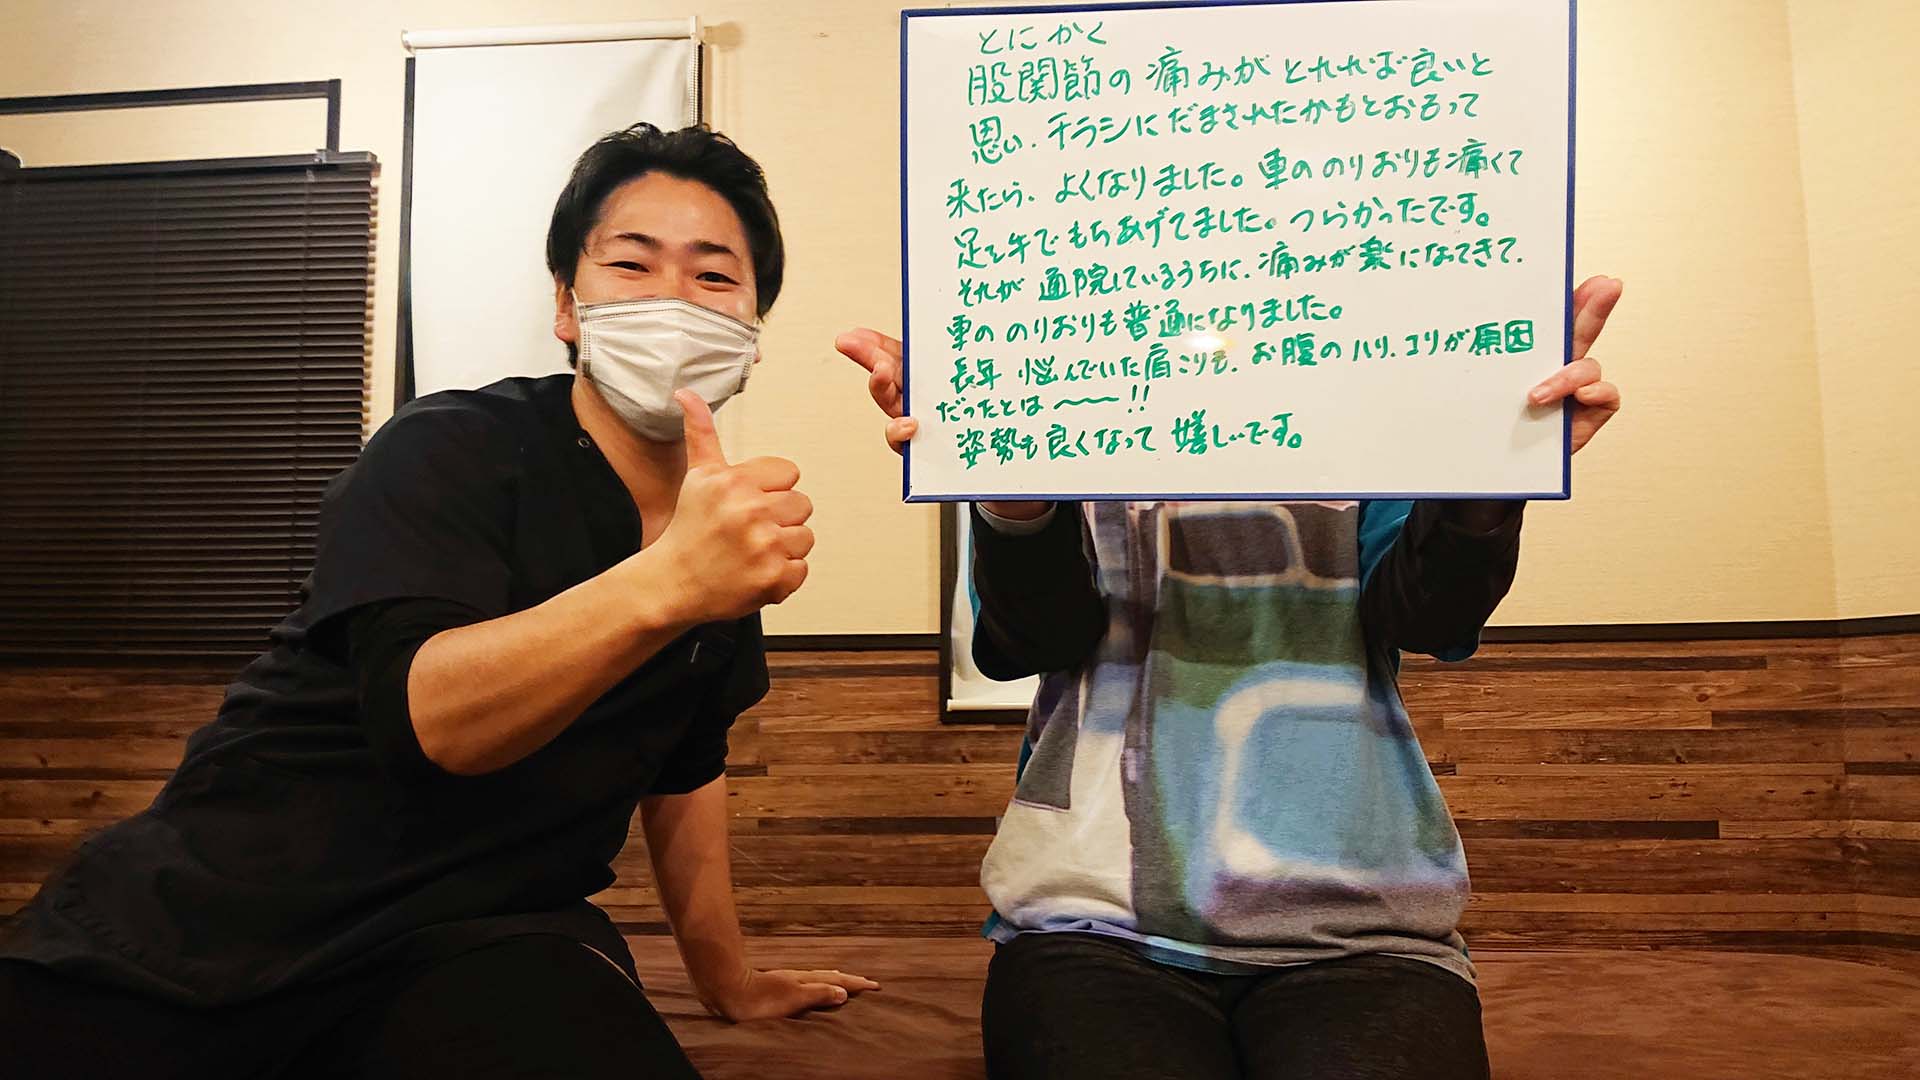 とにかく
股関節の痛みがとれれば良いと
思い、チラシにだまされたかもとおもって
来たら、よくなりました。車ののりおりも痛くて
足を手でもちあげてました。つらかったです。
それが通院しているうちに、痛みが楽になってきて、
車ののりおりも普通になりました。
長年悩んでいた肩こりも、お腹のハリ、コリが原因
だったとは〜〜!!
姿勢も良くなって嬉しいです。